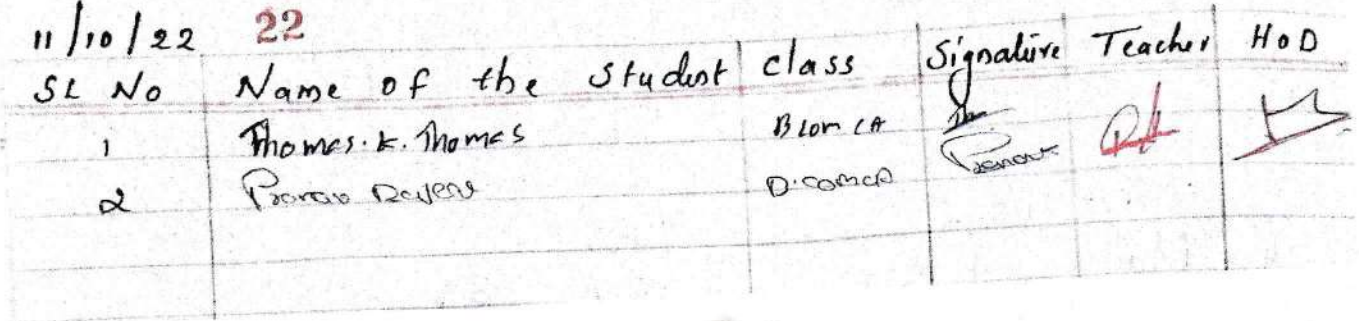 11/10/22 22
SL No Name of the Student class Signature Teacher HoD
1 Thomas. K. Thomas B Com CA
2 Pranav B.Com CA Pranav